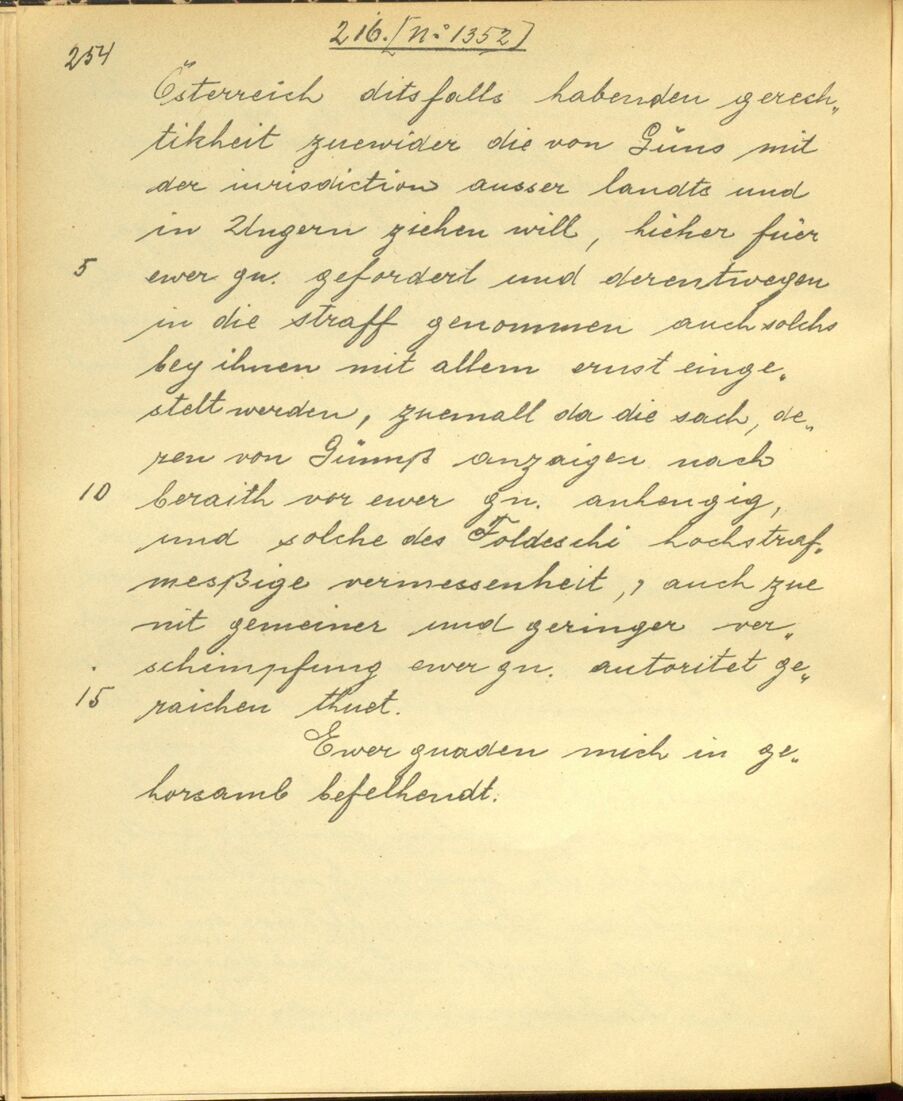 216. [N:o 1352]
254
Österreich ditsfalls habenden gerech„
tikheit zuewider die von Güns mit
der iurisdiction ausser landts und
in Ungern ziehen will, hieher füer
5 ewer gn. gefordert und derentwegen
in die straff genommen auch solchs
bey ihnen mit allem ernst einge„
stelt werden, zuemall da die sach, de„
ren von Günnß anzaigen nach
10 beraith vor ewer gn. anhengig,
und solche des Földeschi hochstraf„
meßige vermessenheit,, auch zue
nit gemeiner und geringer ver„
schimpfung ewer gn. autoritet ge„
15 raichen thuet.
Ewer gnaden mich in ge„
horsamb befelhendt.